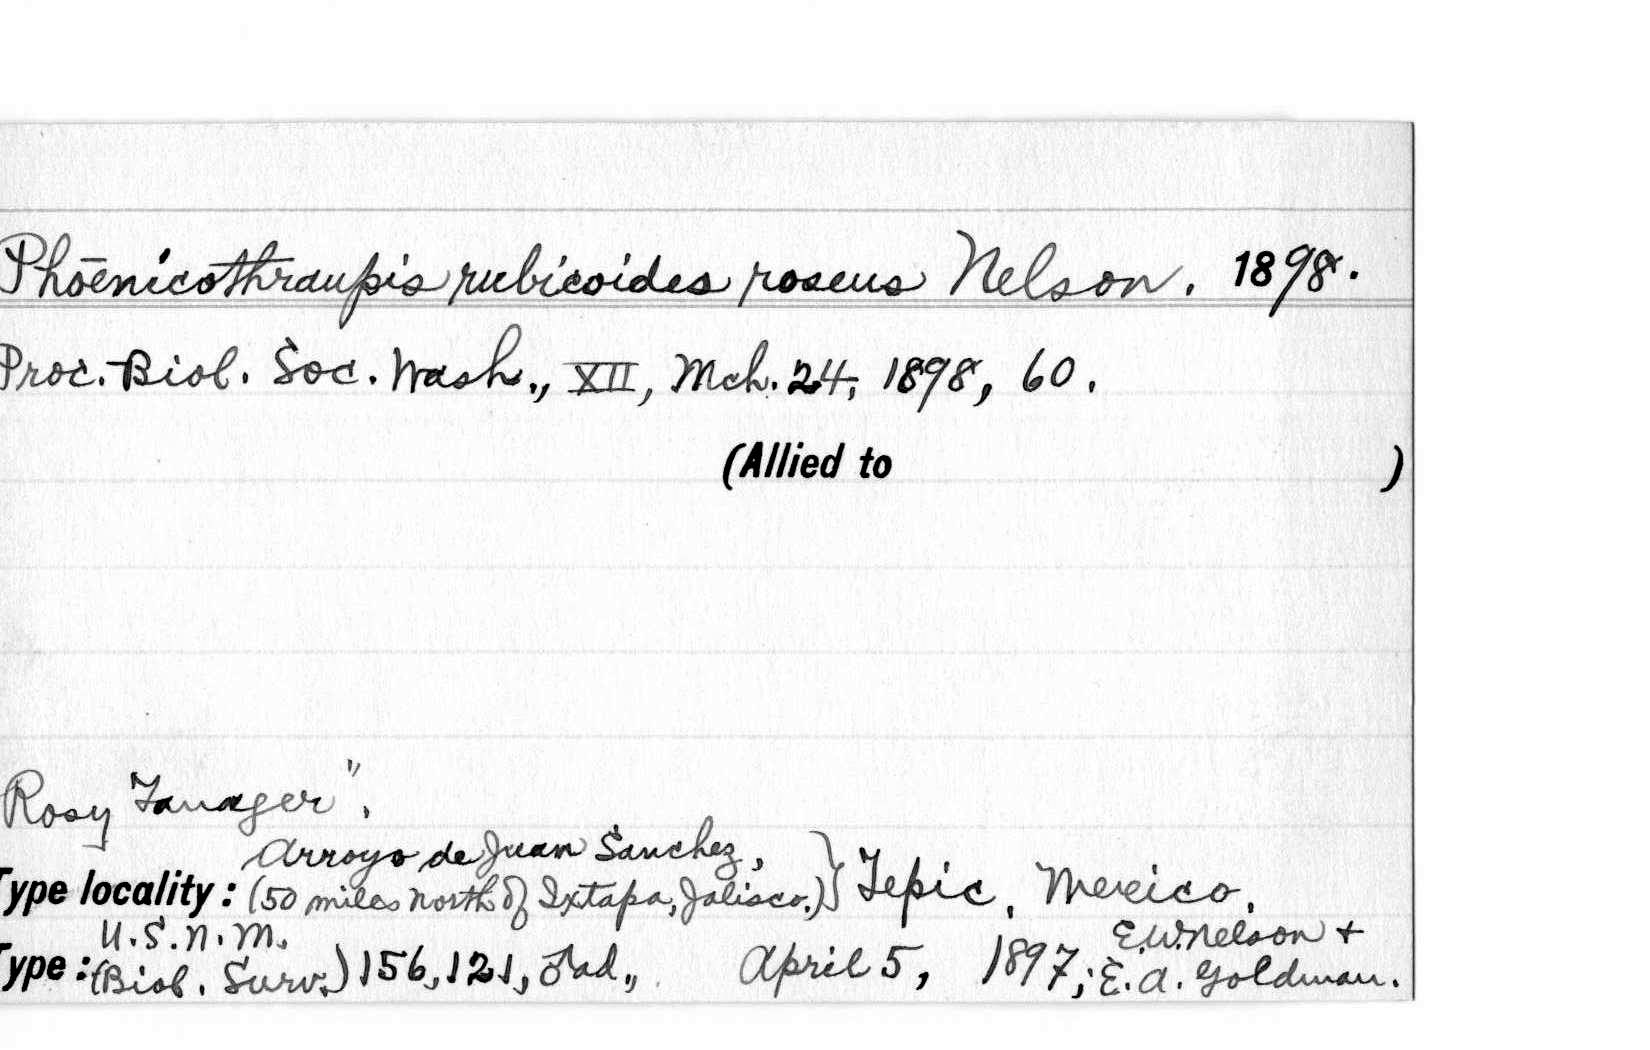 Phoenicothraupis rubicoides roseus Nelson. 1898.
Proc. Biol. Soc. Wash., XII, Mch. 24, 1898, 60.
(Allied to )
Rosy Tanager".
Arroyo de Juan Sanchez,
Type locality: (50 miles north of Ixtapa, Jalisco.)} Tepic, Mexico.
U.S.N.M. E.W. Nelson +
Type: (Biol. Surv.) 156,121, ♂ ad., April 5, 1897; E.A. Goldman.